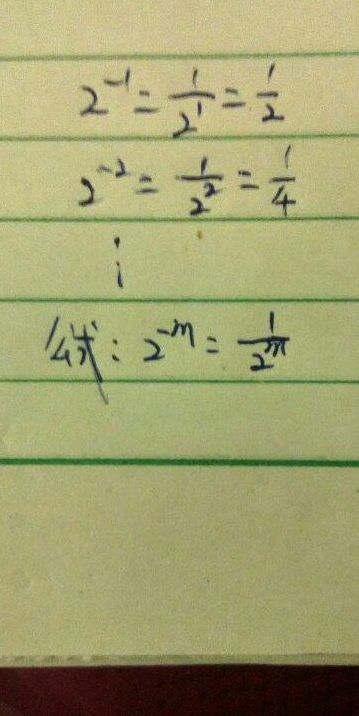 2⁻¹ = 1/2¹ = 1/2
2⁻² = 1/2² = 1/4
⋮
公式: 2⁻ᵐ = 1/2ᵐ